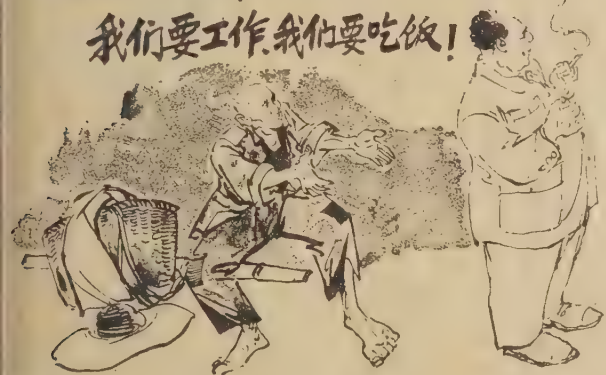 我们要工作、我们要吃饭！